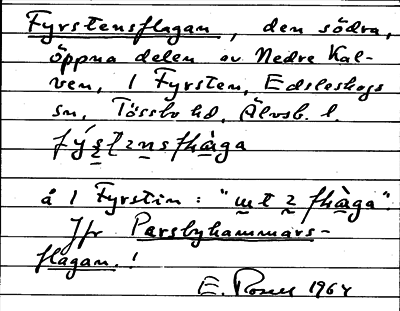 Fyrstensflagan, den södra,
öppna delen av Nedre Kal-
ven, i Fyrsten, Edsleskogs
sn, Tössbo hd, Älvsb. l.
å i Fyrstin:
Jfr Parsbyhammars-
flagan.!
E. 1964